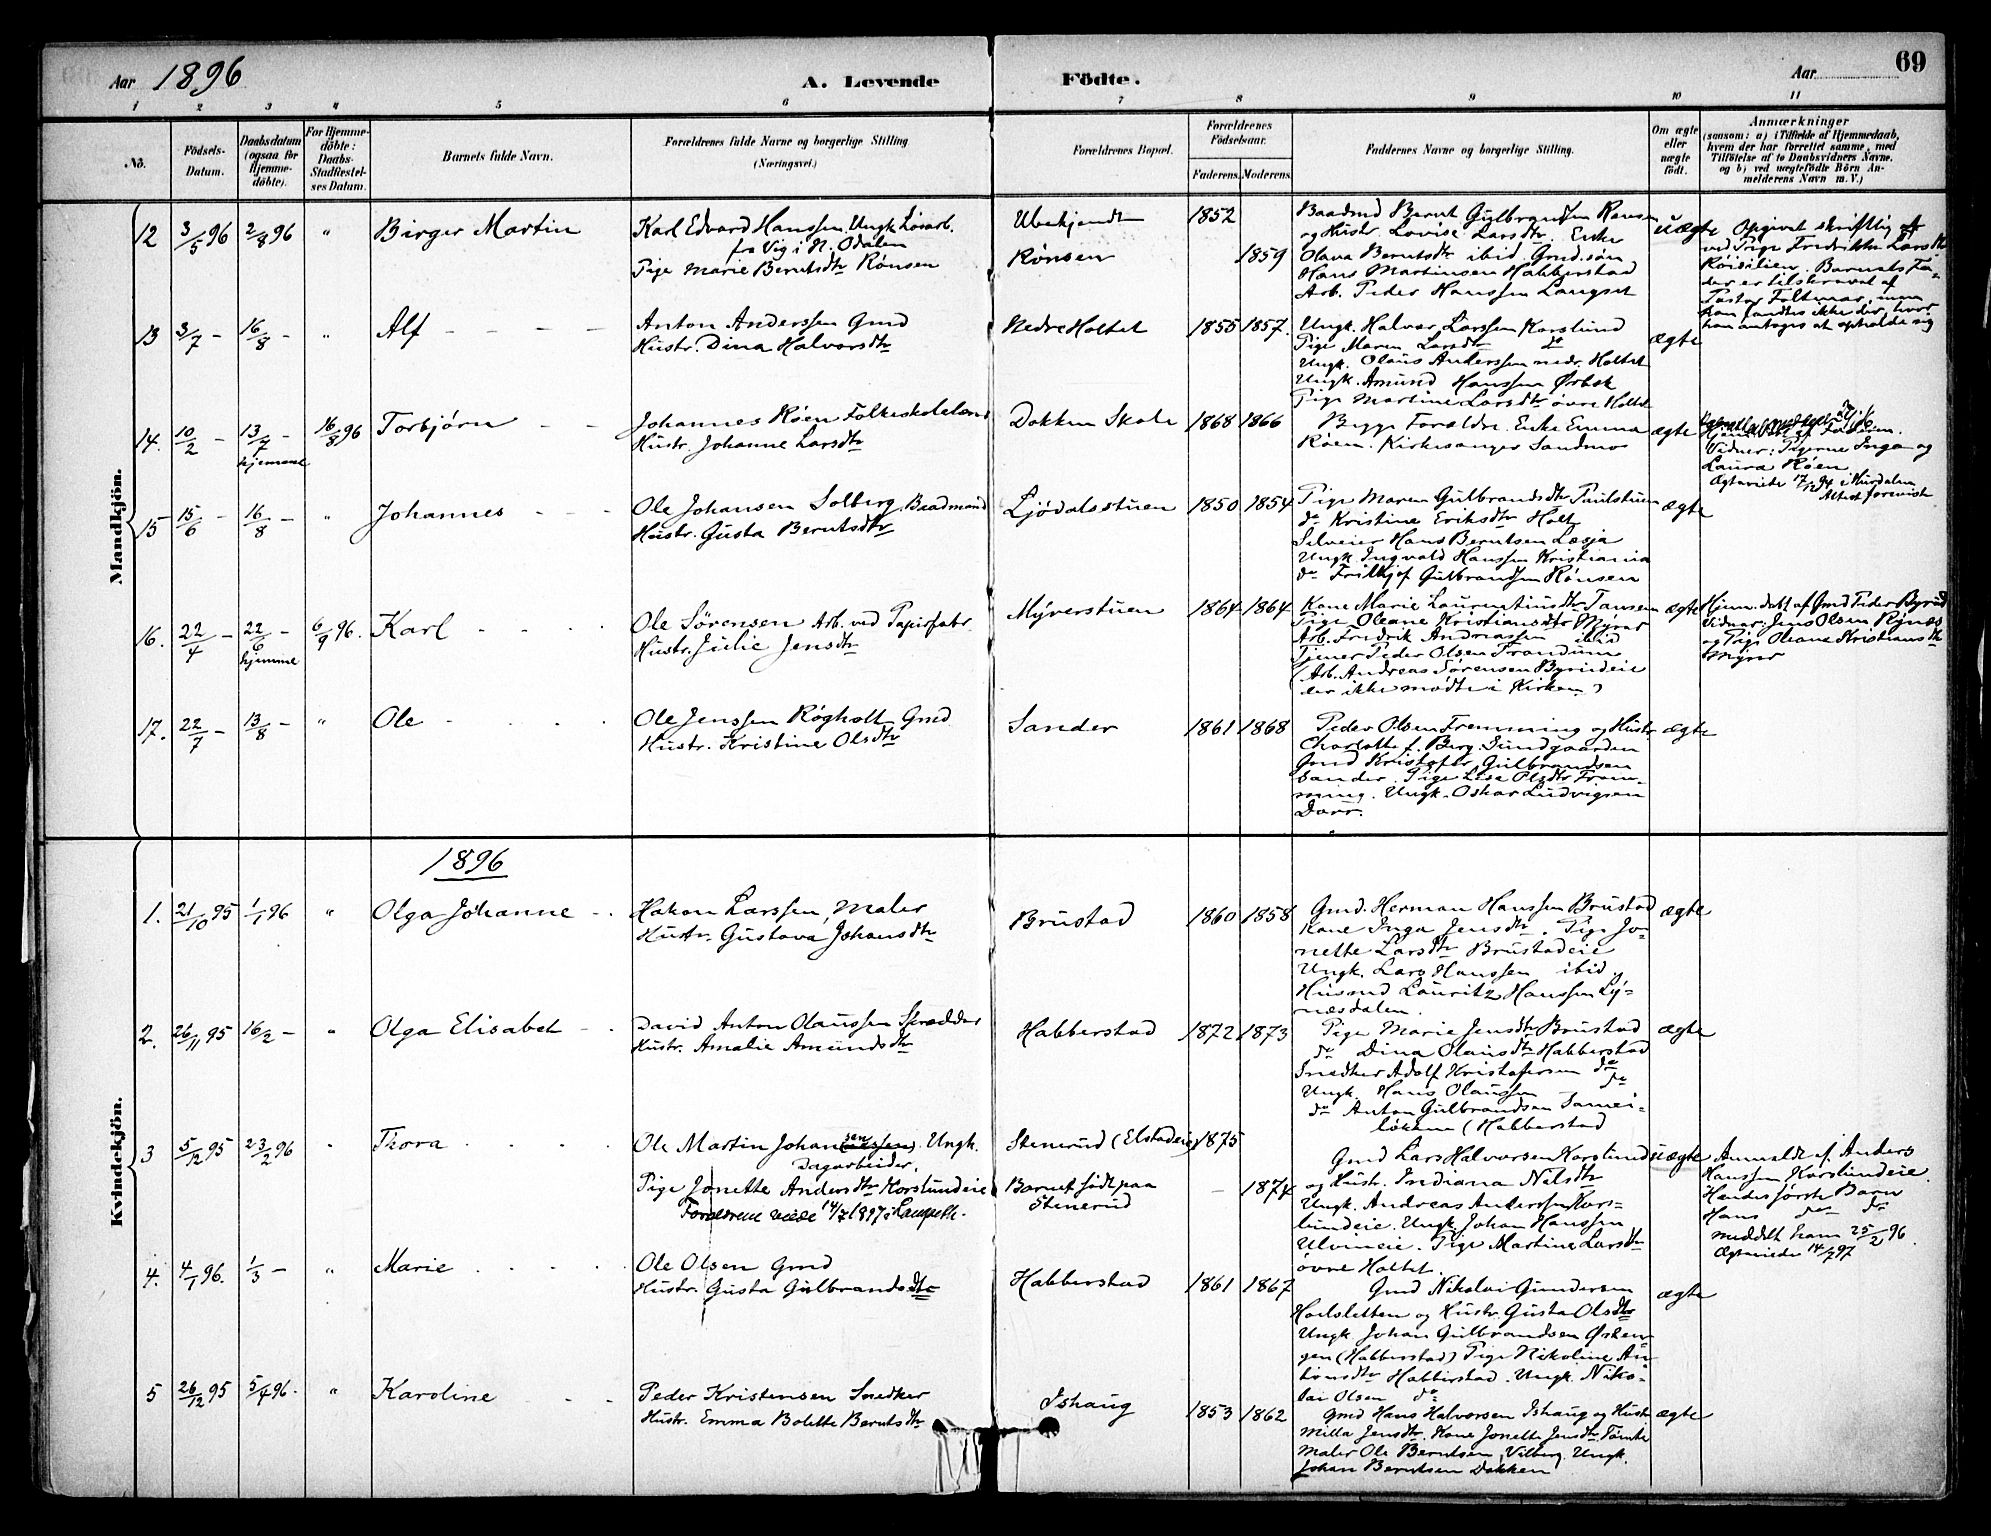 69
Aar 1896
A. Levende Födte.
Aar
1 2 3 4 5 6 7 8 9 10 11
Nö.
Födsels-Datum.
Daabsdatum (ogsaa for Hjemme-döbte).
For Hjemme-döbte: Daabs-Stadfæstel-ses Datum.
Barnets fulde Navn.
Forældrenes fulde Navne og borgerlige Stilling (Næringsvei.)
Forældrenes Bopæl.
Forældrenes Födselsaar.
Faderens. Moderens.
Faddernes Navne og borgerlige Stilling.
Om ægte eller uægte födt.
Anmærkninger
(saasom: a) i Tilfælde af Hjemmedaab, hvem der har forrettet samme, med Tilföielse af to Daabsvidners Navne. og b) ved uægtefödte Börn An-melderens Navn m. V.)
Mandkjön.
12 3/5 96 2/8 96 " Birger Martin
Karl Edvard Hanssen Ungk. Løsarb.
fra Vig i N. Odalen
Pige Marie Berntsdtr Rønsen
Ubekjendt
Rønsen
1852
1859
Baadmd Bernt Gulbrandsen Rønsen
og Hustr. Lovise Larsdtr. Enke
Olava Berntsdtr ibid. Gmd.søn
Hans Martinsen Habberstad
Arb. Peder Hanssen Langset
uægte
Opgivet skriftlig af
ved Pige Fredrikke Larsdtr
Røisilien. Barnets Fa-
der er tilskrevet af
Pastor Foltmar, men
han fandtes ikke der, hvor
han antoges at opholde sig
13 3/7 – 16/8 – " Alf – – – –
Anton Anderssen Gmd
Hustr. Dina Halvorsdtr
Nedre Holtet
1855 1857.
Ungk. Halvor Larssen Korslund
Pige Maren Larsdtr do
Ungk. Olaus Anderssen nedr. Holtet
Ungk. Amund Hanssen Ørbek
Pige Martine Larsdtr øvre Holtet
ægte
14. 10/2 – 13/7 – hjemme 16/8 96 Torbjørn – –
Johannes Røen Folkeskolelærer
Hustr. Johanne Larsdtr
Dokken Skole
1868 1866
Begge Forældre. Enke Emma
Røen. Kirkesanger Sandmo
ægte
Hjemmedøbt af Faderen.
Vidner: Pigerne Inga og
Laura Røen
Ægteviede 17/12 94 i Hurdalen
Attest forevist
15 15/6 – 16/8 – " Johannes – – –
Ole Johansen Solberg, Baadmand
Hustr. Gusta Berntsdtr
Ljødalsstuen
1850 1854
Pige Maren Gulbrandsdtr Paulstuen
do Kristine Eriksdtr Holt
Selveier Hans Berntsen Læsja
Ungk. Ingvald Hanssen Kristiania
do Frithjof Gulbrandsen Rønsen
ægte
16. 22/4 – 22/6 – hjemme 6/9 96. Karl – – – –
Ole Sørensen Arb. ved Papirfabr.
Hustr. Julie Jensdtr
Myrerstuen
1864 1864
Kone Marie Laurentiusdtr Tansem
Pige Oleane Kristiansdtr Myrer
Arb. Fredrik Andreassen ibid
Tjener Peder Olsen Trandum
(Arb. Andreas Sørensen Byrudeie
der ikke mødte i Kirken)
ægte
Hjem. døbt af Gmd Peder Byrud
Vidner: Jens Olsen Rynæs
og Pige Oleane Kristiansdtr
Myrer
17. 22/7 – 13/8 – " Ole – – – –
Ole Jenssen Røgholt Gmd
Hustr. Kristine Olsdtr
Sander
1861 1868
Peder Olsen Fremming og Hustr
Charlotte f. Berg. Sundgaarden
Gmd Kristoffer Gulbrandsen
Sander. Pige Lise Olsdtr Frem-
ming. Ungk. Oskar Ludvigsen
Dorr.
ægte
Kvindekjön.
1896
1. 21/10 95 1/1 96 " Olga Johanne – –
Hakon Larssen, Maler
Hustr. Gustava Johansdtr
Brustad
1860 1858
Gmd. Herman Hanssen Brustad
Kone Inga Jensdtr. Pige Jo-
nette Larsdtr Brustadeie
Ungk. Lars Hanssen ibid.
Husmd Lauritz Hanssen Ly-
næsdalen.
ægte
2. 26/11 95 16/2 – " Olga Elisabet – –
David Anton Olaussen Skrædder
Hustr. Amalie Amundsdtr
Habberstad
1872 1873
Pige Marie Jensdtr Brustad
do Dina Olausdtr Habberstad
Snedker Adolf Kristofersen do
Ungk. Hans Olaussen do
do Anton Gulbrandsen Samei-
løkken (Habberstad
ægte
3 5/12 95 23/2 96 " Thora – – – –
Ole Martin Johansen. Ungk.
Dagarbeider.
Pige Jonette Andersdtr Korslundeie
Forældrene viede 14/7 1897 i Langseth.
Stenerud (Elstadeie)
Barnet født paa
Stenerud
1875
– 1874
Gmd Lars Halvorsen Korslund
og Hustr. Indiana Nilsdtr
Ungk. Andreas Andersen Kors-
lundeie. Ungk. Johan Hanssen
Ulvineie. Pige Martine Larsdtr
øvre Holtet.
uægte
Anmeldt af Anders
Hanssen Korslundeie.
Hendes første Barn
Hans do do
meddelt ham 25/2 96.
Ægteviede 14/7 97
4. 4/1 96. 1/3 – " Marie – – – –
Ole Olsen Gmd
Hustr. Gusta Gulbrandsdtr
Habberstad
1861 1867
Gmd Nikolai Gundersen
Hoelsletten og Hustr. Gusta Olsdtr
Ungk Johan Gulbrandsen Østen-
gen (Habberstad) Pige Nikoline An-
tonsdtr Habberstad. Ungk. Niko-
lai Olsen do
ægte
5 26/12 95 5/4 96. " Karoline – –
Peder Kristensen Snedker
Hustr. Emma Bolette Berntsdtr
Ishaug
1853 1862
Gmd Hans Halvorsen Ishaug og Hustr
Milla Jensdtr. Kone Jonette Jensdtr Tømte
Maler Ole Berntsen Vilberg. Ungk.
Johan Berntsen Dokken
ægte